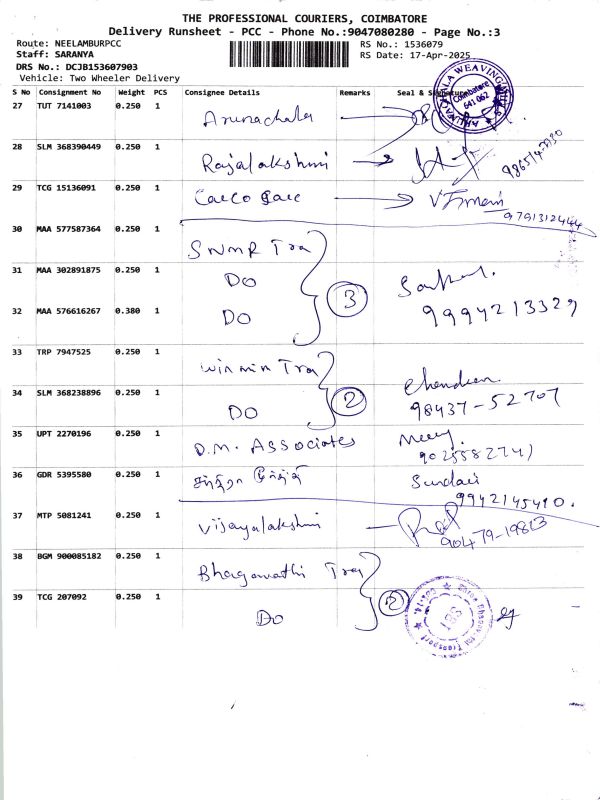 THE PROFESSIONAL COURIERS, COIMBATORE
Delivery Runsheet - PCC - Phone No.:9047080280 - Page No.:3
Route: NEELAMBURPCC RS No.: 1536079
Staff: SARANYA RS Date: 17-Apr-2025
DRS No.: DCJB153607903
Vehicle: Two Wheeler Delivery
S No Consignment No Weight PCS Consignee Details Remarks Seal & Signature
Coimbatore
641 062
27 TUT 7141003 0.250 1 Arunachala
28 SLM 368390449 0.250 1 Rajalakshmi
29 TCG 15136091 0.250 1
9791312444
30 MAA 577587364 0.250 1 SNMR Tra
31 MAA 302891875 0.250 1 Do 3
32 MAA 576616267 0.380 1 Do 9994213329
33 TRP 7947525 0.250 1 win min Tra
34 SLM 368238896 0.250 1 Do 2 98437-52707
35 UPT 2270196 0.250 1 D.M. Associates
36 GDR 5395580 0.250 1 Sundari
9942145410.
37 MTP 5081241 0.250 1 Vijayalakshmi
38 BGM 900085182 0.250 1 Bhagawathi Tra
39 TCG 207092 0.250 1 Do 2